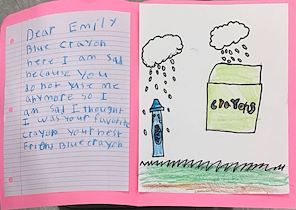 Dear Emily
Blue Crayon
here I am sad
because you
do not use me
anymore so I
am sad I thought
I was your favorite
crayon your best
Friend Blue crayon
crayons